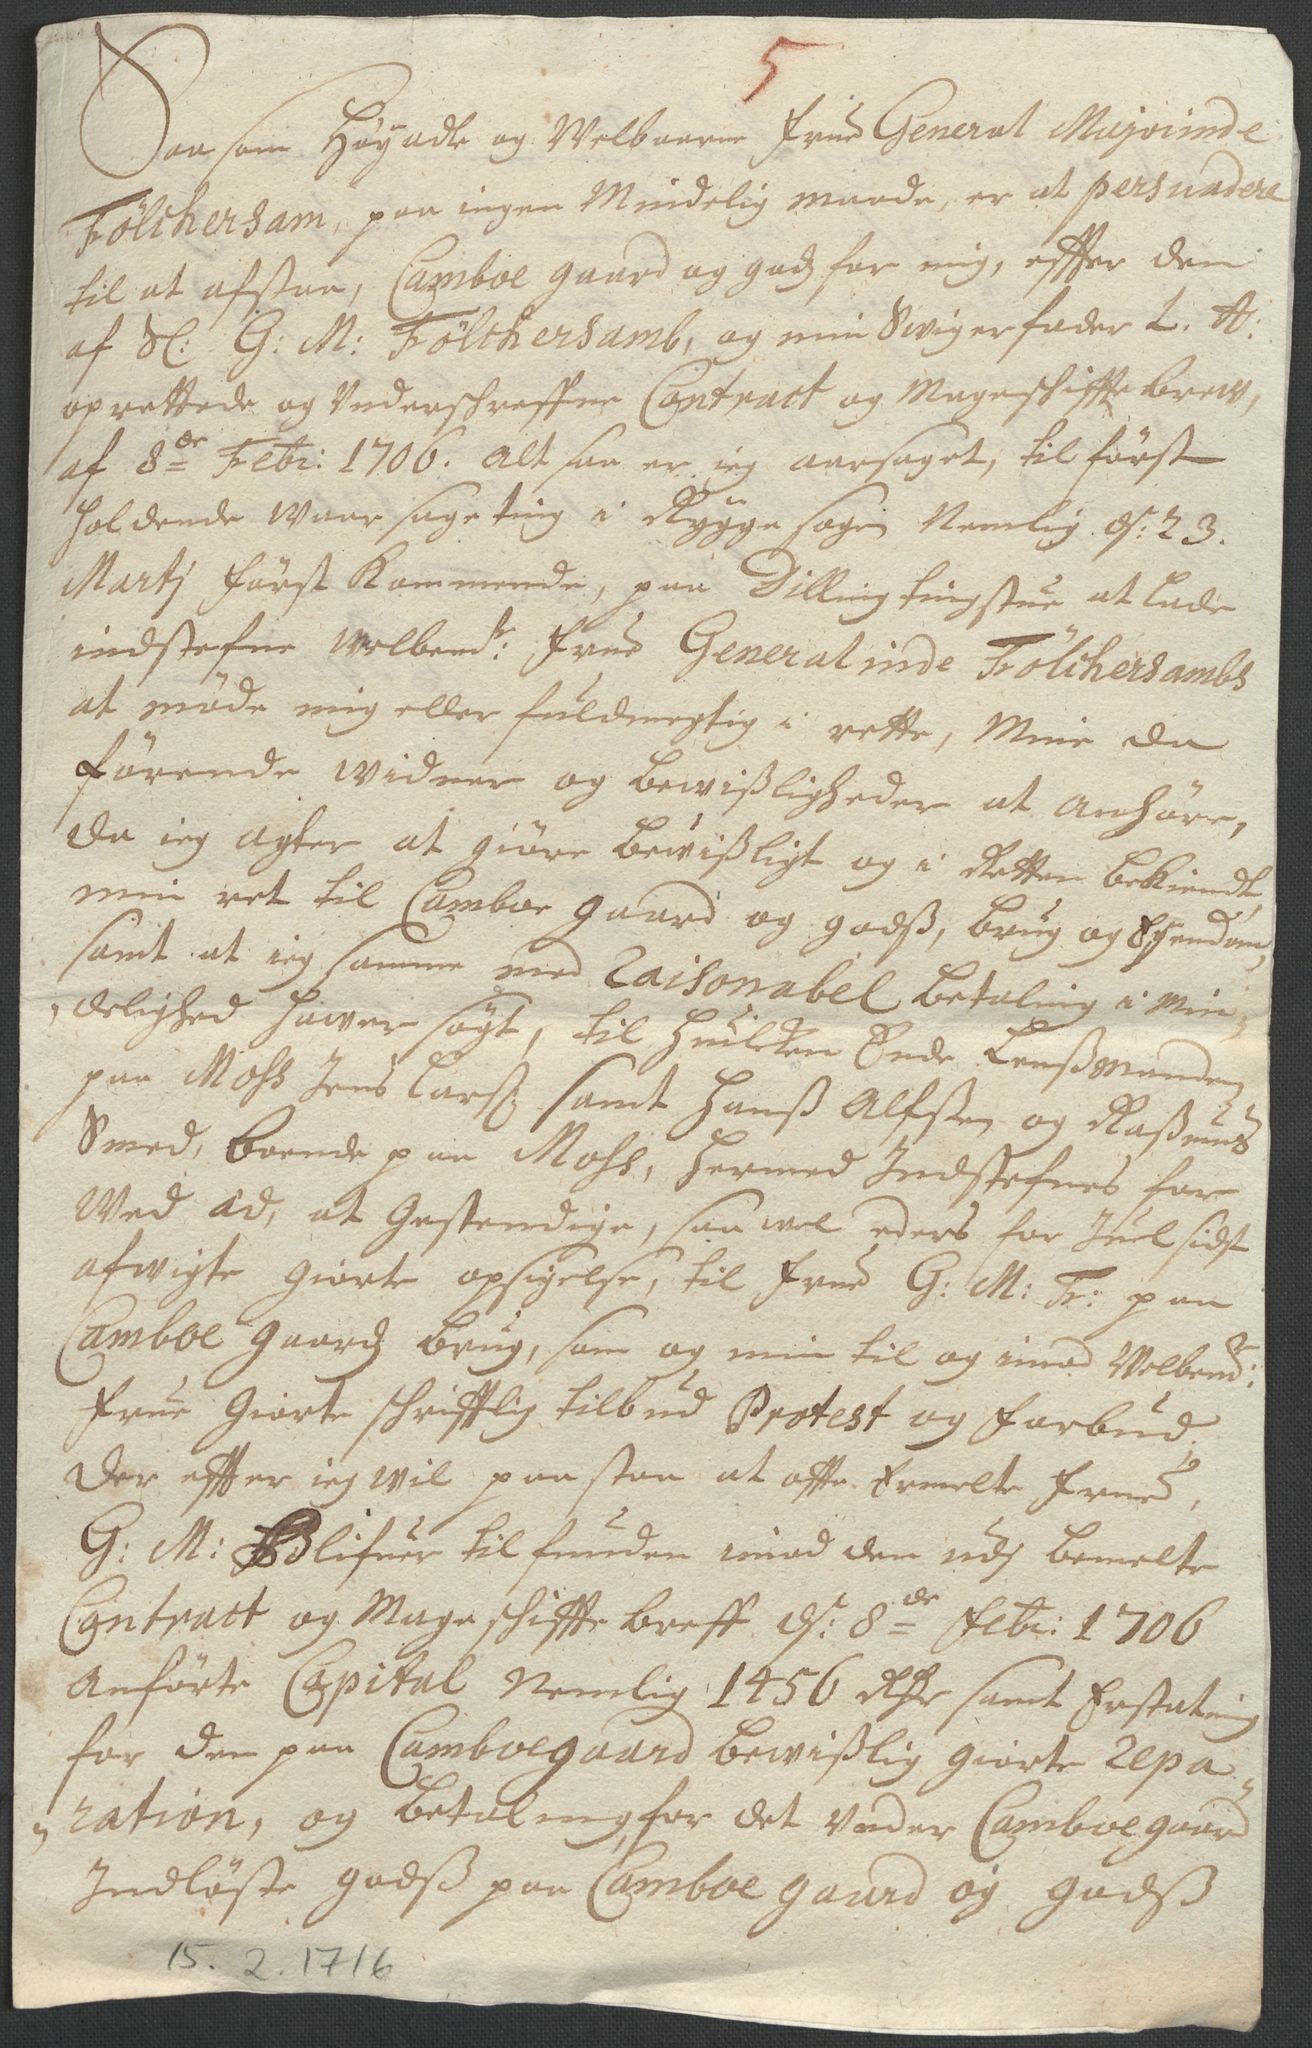 5
Saa som Höyædle og Welbaarne Frue General Majorinde
Fölchersam, paa ingen Mindelig maade, er at persuadere
til at afstaa, Camboe gaard og gods for mig, effter den
af Sl: G: M: Fölchersamb, og min Swigerfader L. A:
oprettede og Underschreffne Contract og Mageschiffte brew,
af 8de Febr: 1706. Alt saa er jeg aarsaget, til först
holdende Waar sageting i Rygge sogn Nemlig ds: 23.
Martj först Kommende, paa Dilling tingstue at lade
indstefne Welbemte: Frue Generalinde Fölchersambs
at möde mig eller fuldmegtig i rette, Mine da
förende widner og bewißligheder at anhöre,
da ieg agter at giöre bewißligt og i Retten bekiendt,
min ret til Camboe gaard og godß, brug og Eyendom,
samt at ieg samme med Raisonabel betaling i Min¬
delighed hawer sögt, til huilken Ende Lenßmanden
paa Moss Jens Larß: samt Hanß Alfsen og Raßmus
Smed, boende paa Moss, hermed Indstefnes for
Wed æd, at Gestendige, saa wel eders for Juel sidst
afwigte giorte opsigelse, til Frue G: M: F: paa
Camboe gaards brug, som og min til og imod Welbemte:
Frue Giorte schrifftlig tilbud Protest og forbud,
der effter ieg wil paastaa at offte Ermelte Frue,
G: M: Blifuer tilfunden imod den udj bemelte
Contract og Mageschiffte breff ds: 8de Febr: 1706
Anförte Capital Nemlig 1456 Rdr samt Erstatning
for den paa Camboegaard bewißlig giorte Repa¬
ration, og betaling for det Under Camboegaard
Indlöste godß paa Camboe gaard og godß
15. 2. 1716